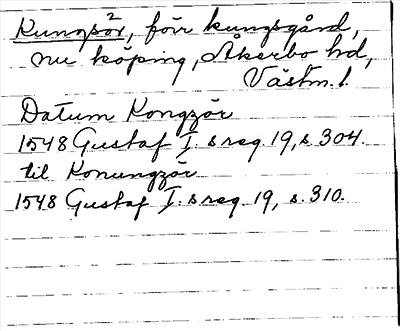 Kungsör, förr kungsgård,
2
nu köping, Åkerbo hd,
Västm. l.
Datum Kongzör
1548 Gustaf I:s reg. 19, s. 304.
til Konungzör
1548 Gustaf I:s reg. 19, s. 310.